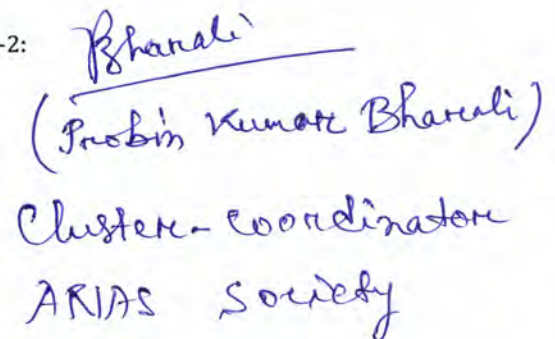 -2: Bharali
(Probin Kumar Bharali)
Cluster-coordinator
ARIAS Society